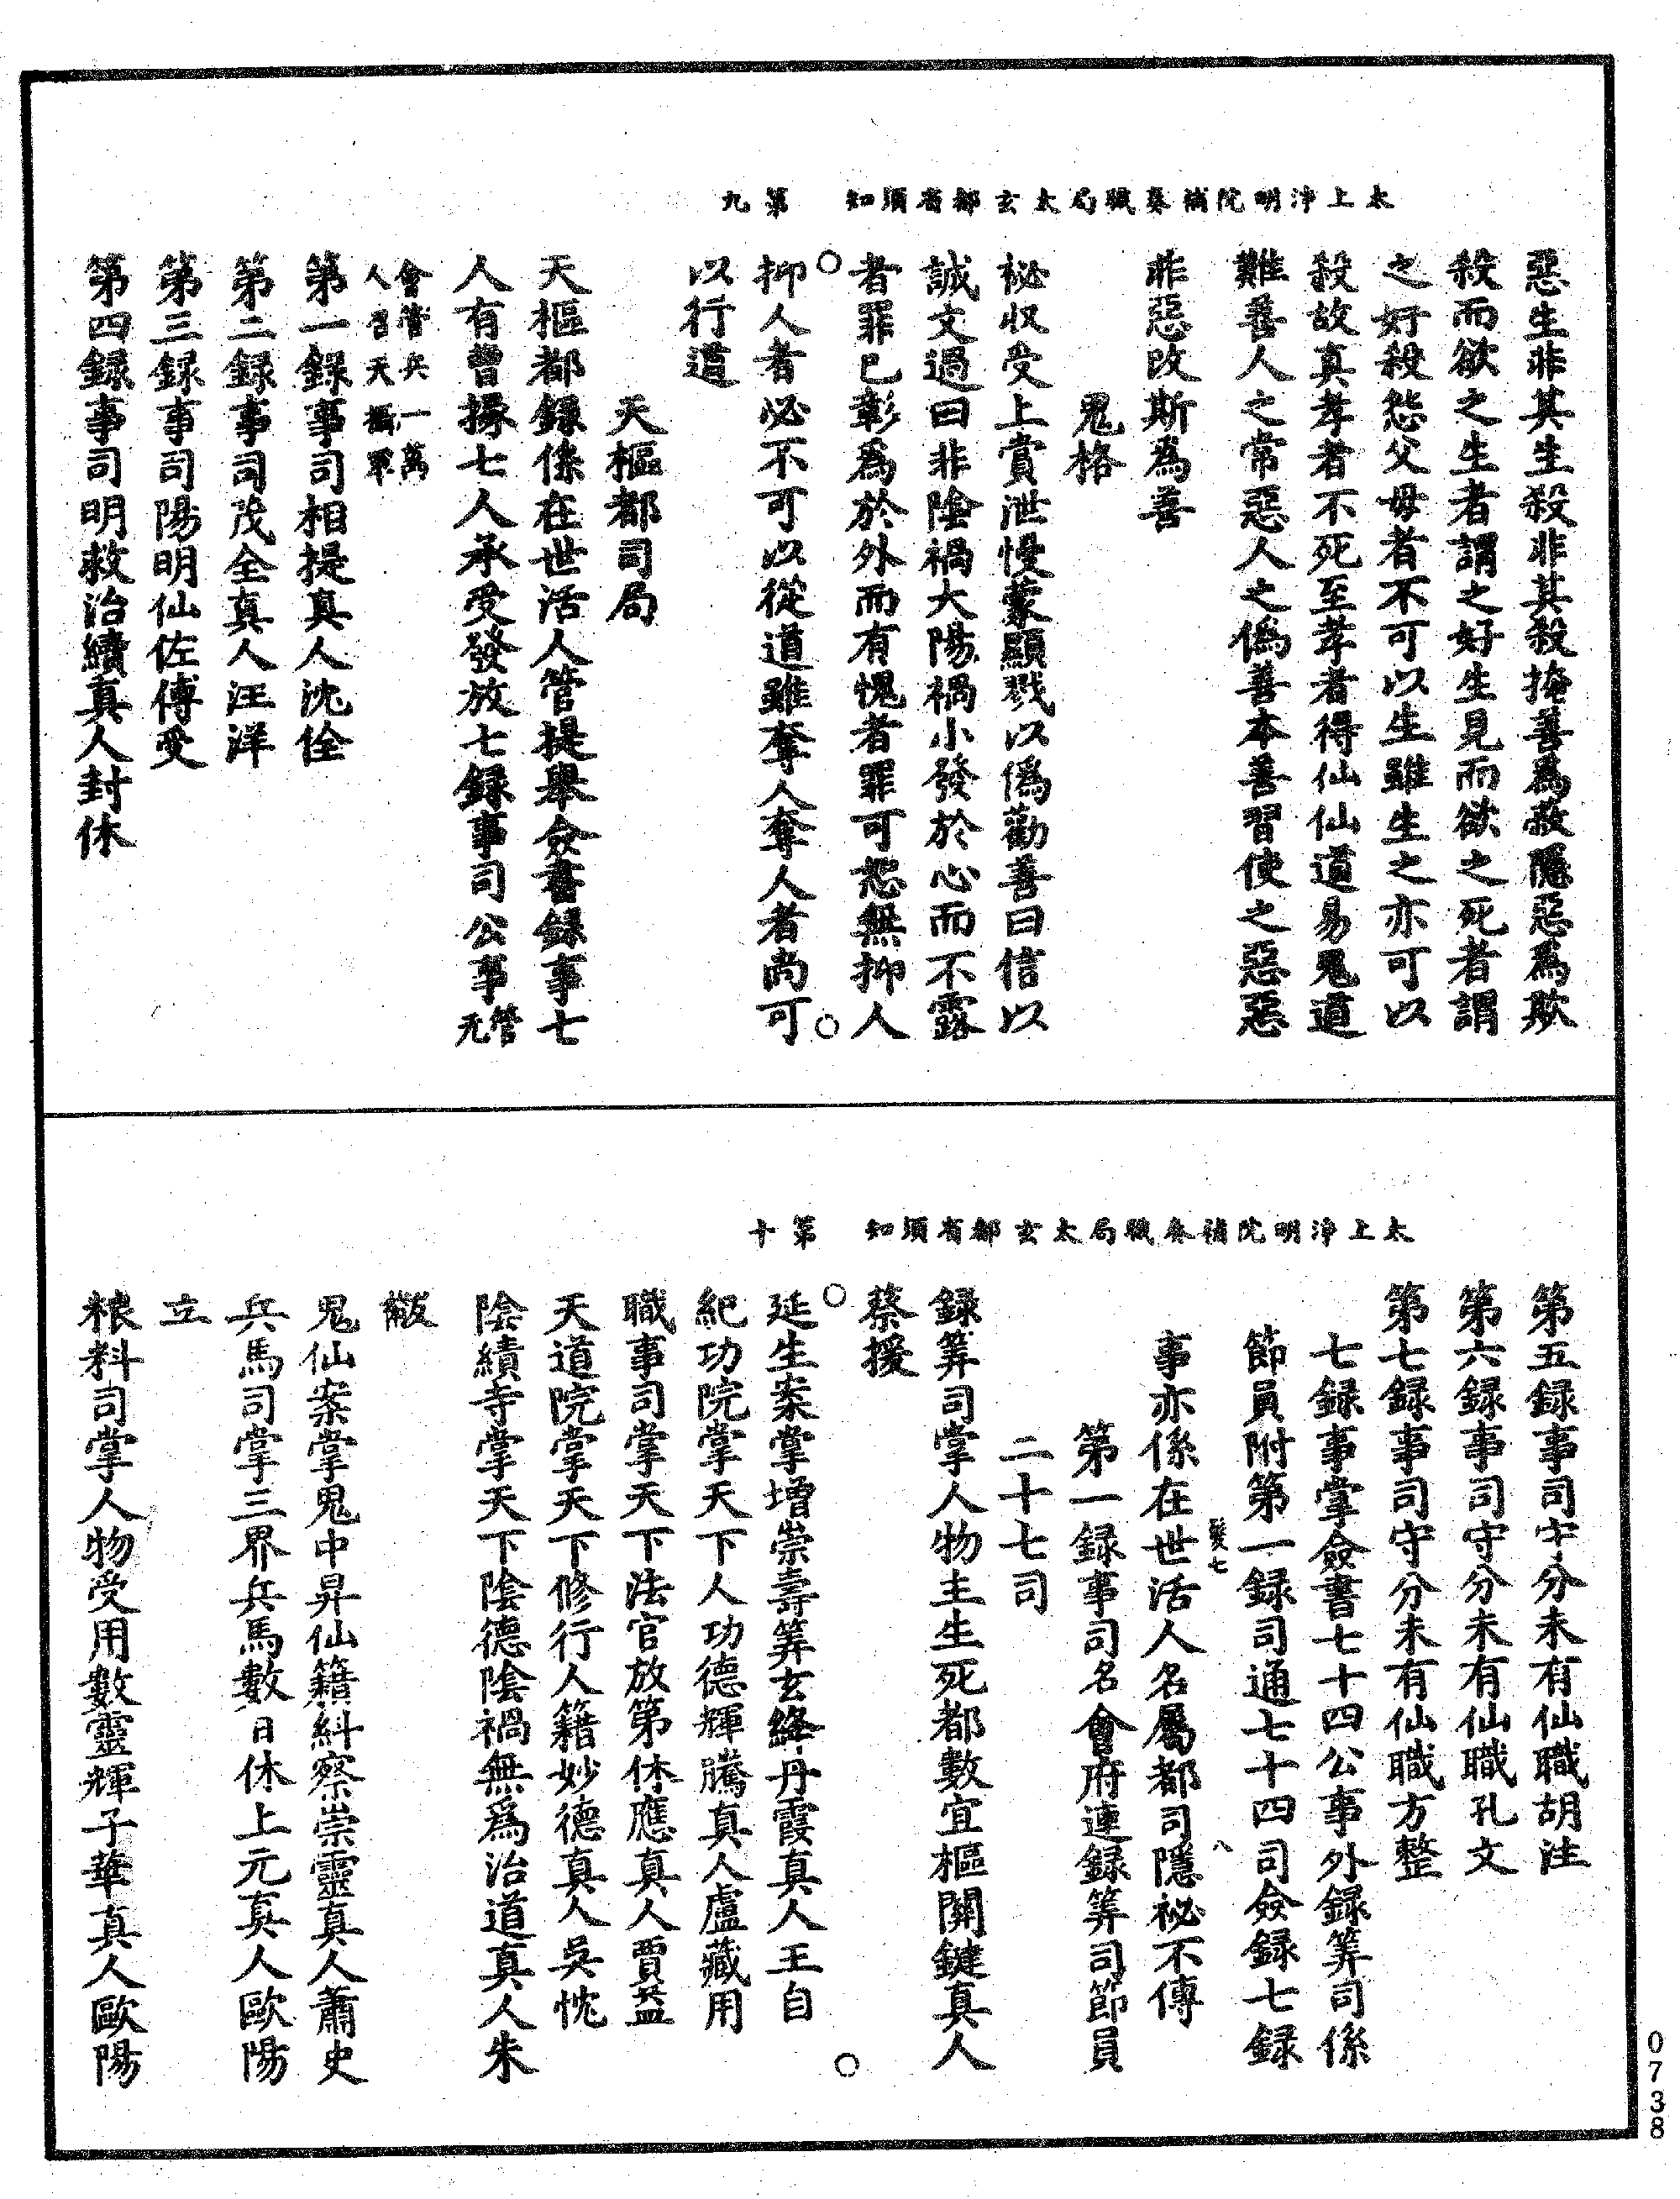 太上淨明院補奏職局太玄都省須知　第九
惡生非其生殺非其殺掩善為赦隱惡為欺
殺而欲之生者謂之好生見而欲之死者謂
之好殺愁父母者不可以生雖生之亦可以
殺故真孝者不死至孝者得仙仙道易鬼道
難善人之常惡人之偽善本善習使之惡惡
非惡改斯為善
鬼格
祕収受上賞泄慢蒙顯戮以偽勸善曰信以
誠文過曰非陰禍大陽禍小發於心而不露
者罪已彰為於外而有愧者罪可恕無抑人
抑人者必不可以從道雖奪人奪人者尚可
以行道
天樞都司局
天樞都録係在世活人管提舉僉書録事七
人有曾掾七人承受發放七録事司公事管元
會管兵一萬
人召天攝軍
第一録事司相提真人沈佺
第二録事司茂全真人汪洋
第三録事司陽明仙佐傅受
第四録事司明救治續真人封休
太上淨明院補奏職局太玄都省須知　第十
第五録事司守分未有仙職胡注
第六録事司守分未有仙職孔文
第七録事司守分未有仙職方整
七録事掌僉書七十四公事外録筭司係
節員附第一録司通七十四司僉録七録
髮七　八
事亦係在世活人名屬都司隱祕不傳
第一録事司名會府連録筭司節員
二十七司
録筭司掌人物主生死都數宜樞關鍵真人
蔡援
延生案掌增崇壽筭玄絳丹霞真人王自
紀功院掌天下人功德輝騰真人盧藏用
職事司掌天下法官放第休應真人賈益
天道院掌天下修行人籍妙德真人吳忱
陰績寺掌天下陰德陰禍無為治道真人朱
黻
鬼仙案掌鬼中昇仙籍糾察崇靈真人蕭史
兵馬司掌三界兵馬數日休上元真人歐陽
立
粮料司掌人物受用數靈輝子華真人歐陽
0738